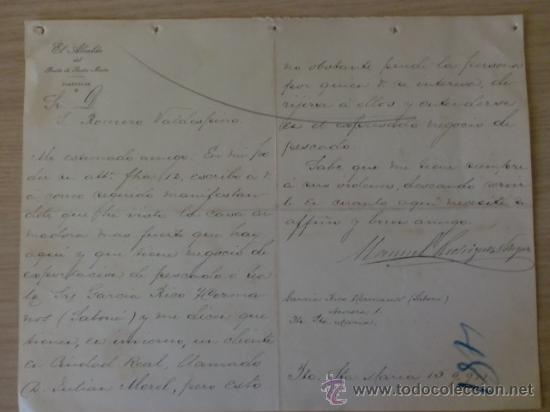 El Alcalde
del
Puerto de Santa María
PARTICULAR
Sr. D.
S. Romero Valdespino.
Mi estimado amigo: En mi po-
der su att.ª fha 12, escribo a V.
como segundo manifestan
dole que he visto la casa ar-
madora mas fuerte que hay
aquí y que tiene negocio de
exportacion de pescado o sea
la Sres García Rico Herma
nos (Saboni) y me dicen que
tienen, en invierno, un cliente
en Ciudad Real, llamado
D. Julian Morel, pero esto
no obstante puede la persona
por quien V. se interesa, di-
rijirse a ellos y entenderse
en el negocio de
pescado.
Sabe que me tiene siempre
a sus ordenes, deseando servir
le en cuanto aquí necesite su
affmo y buen amigo.
Manuel Rodríguez
García Rico Hermanos (Saboni)
Aurora 1.
Pto Sta María.
Pto Sta María 13
todocoleccion
www.todocoleccion.net